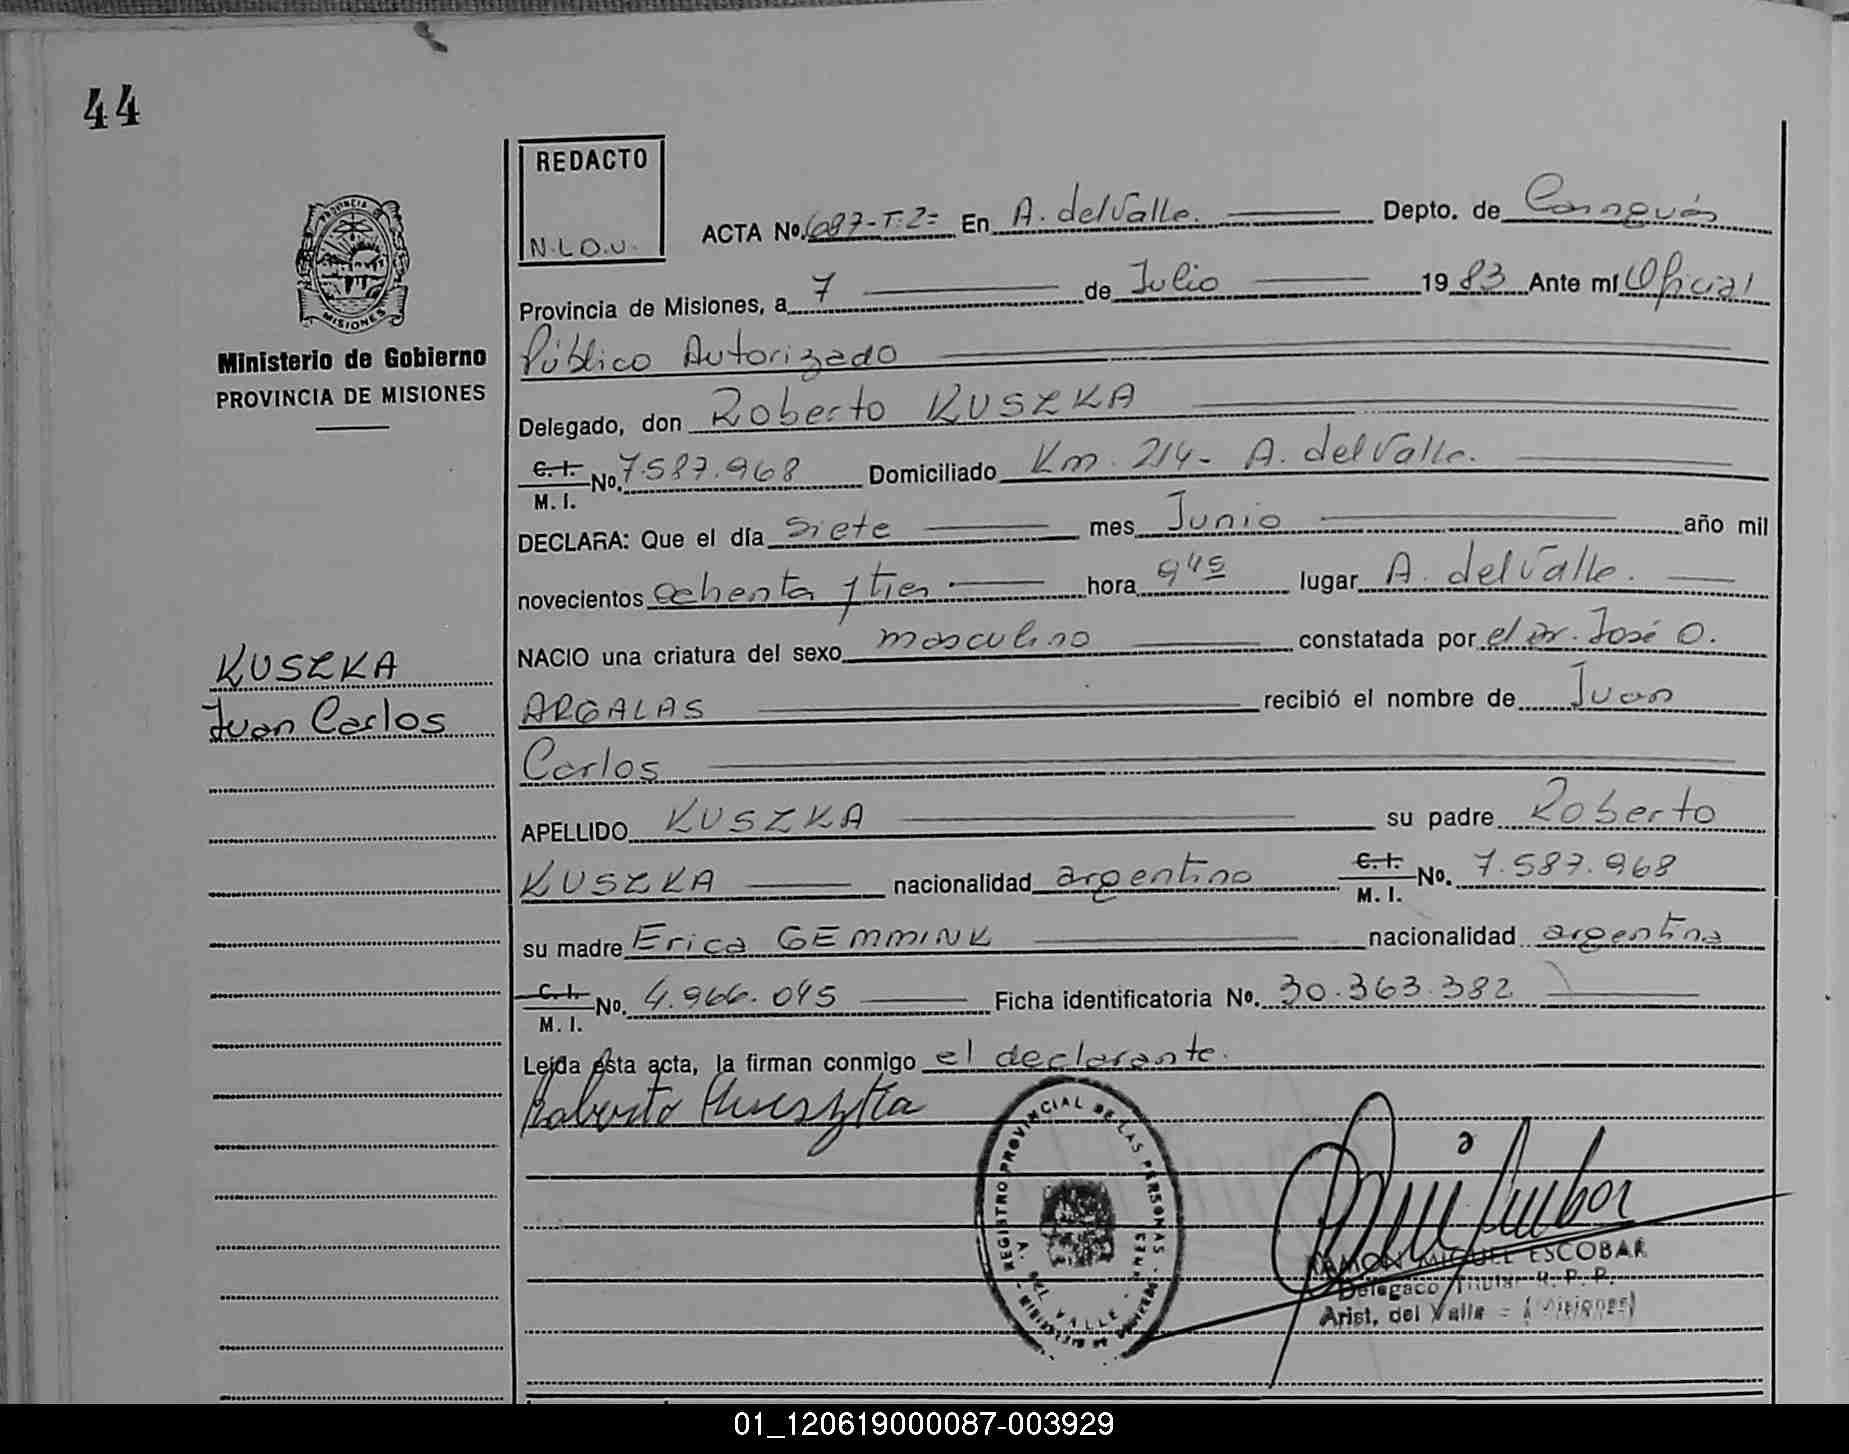 44
REDACTO
N.L.O.U.
ACTA No. 697-T:2= En A. del Valle. Depto. de Cainguás
Provincia de Misiones, a 7 de Julio 1983 Ante mí Oficial
Público Autorizado
Ministerio de Gobierno
PROVINCIA DE MISIONES
Delegado, don Roberto KUSZKA
C. I. M. I. No. 7.587.968 Domiciliado Km. 214- A. del Valle.
DECLARA: Que el día Siete mes Junio año mil
novecientos ochenta y tres hora 9 45 lugar A. del Valle.
NACIO una criatura del sexo masculino constatada por el Dr. José O.
KUSZKA
Juan Carlos
ARGALAS recibió el nombre de Juan
Carlos
APELLIDO KUSZKA su padre Roberto
KUSZKA nacionalidad argentino C. I. M. I. No. 7.587.968
su madre Erica GEMMINK nacionalidad argentina
C. I. M. I. No. 4.966.045 Ficha identificatoria No. 30.363.382
Leída ésta acta, la firman conmigo el declarante.
Roberto Kuszka
REGISTRO PROVINCIAL DE LAS PERSONAS
A. DEL VALLE
RAMON MIGUEL ESCOBAR
Delegado Titular R. P. P.
Arist. del Valle = (Misiones)
01_120619000087-003929